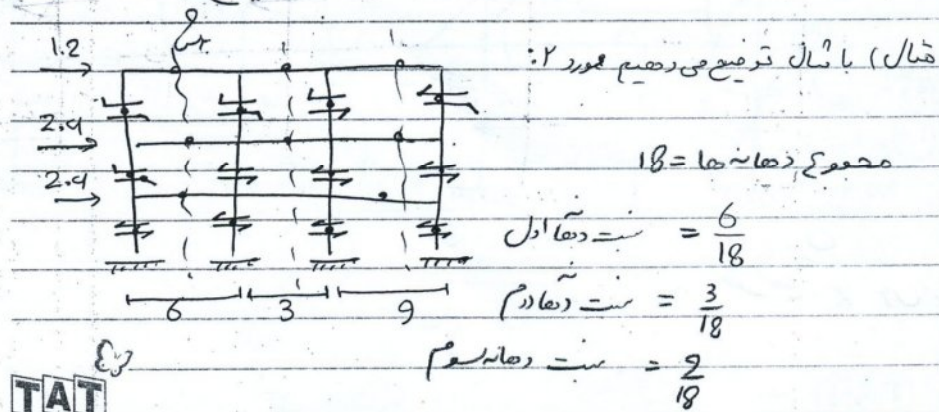 مثال) با مثال توضیح می دهیم مورد ۲:
1.2
2.4
2.4
مجموع دهانه ها = 18
نسبت دهانه اول = 6/18
نسبت دهانه دوم = 3/18
نسبت دهانه سوم = 9/18
6 3 9
TAT